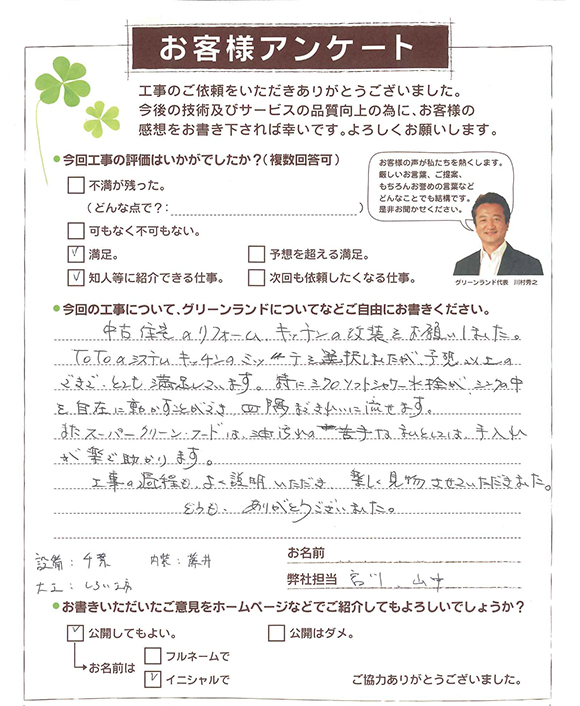 お客様アンケート
工事のご依頼をいただきありがとうございました。
今後の技術及びサービスの品質向上の為に、お客様の
感想をお書き下されば幸いです。よろしくお願いします。
●今回工事の評価はいかがでしたか？（複数回答可）
不満が残った。
（どんな点で？：　）
可もなく不可もない。
満足。
予想を超える満足。
知人等に紹介できる仕事。
次回も依頼したくなる仕事。
お客様の声が私たちを熱くします。
厳しいお言葉、ご提案、
もちろんお誉めの言葉など
どんなことでも結構です。
是非お聞かせください。
グリーンランド代表　川村秀之
●今回の工事について、グリーンランドについてなどご自由にお書きください。
中古住宅のリフォーム、キッチンの改装をお願いしました。
TOTOのシステムキッチンのミッテを選択しましたが、予想以上の
できで、とても満足しています。特にミクロソフトシャワー水栓が、シンクの中
を自在に動かすことができ四隅まできれいに流せます。
またスーパークリーン・フードは、油汚れの苦手な私としては、手入れ
が楽で助かります。
工事の過程も、よく説明いただき　楽しく見物させていただきました。
どうも、ありがとうございました。
設備：千葉　内装：藤井
大工：しろい工房
お名前
弊社担当　宮川、山中
●お書きいただいたご意見をホームページなどでご紹介してもよろしいでしょうか？
公開してもよい。
公開はダメ。
お名前は
フルネームで
イニシャルで
ご協力ありがとうございました。